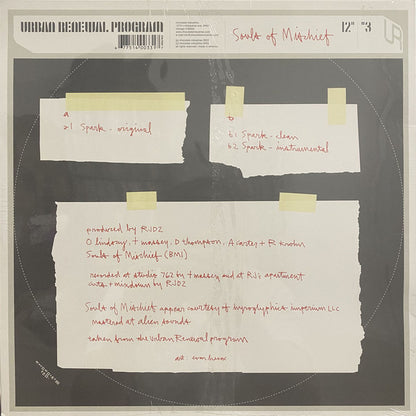 URBAN RENEWAL PROGRAM
Souls of Mischief
12" #3
a
a1 Spark - original
b
b1 Spark - clean
b2 Spark - instrumental
produced by RJD2
O lindsey, t massey, D thompson, A carter + R krohn
Souls of Mischief (BMI)
recorded at studio 762 by t massey and at RJ's apartment
cuts + mixdown by RJD2
Souls of Mischief appear courtesy of hyroglyphics imperium LLC
mastered at alien sounds
taken from the urban Renewal program
art: